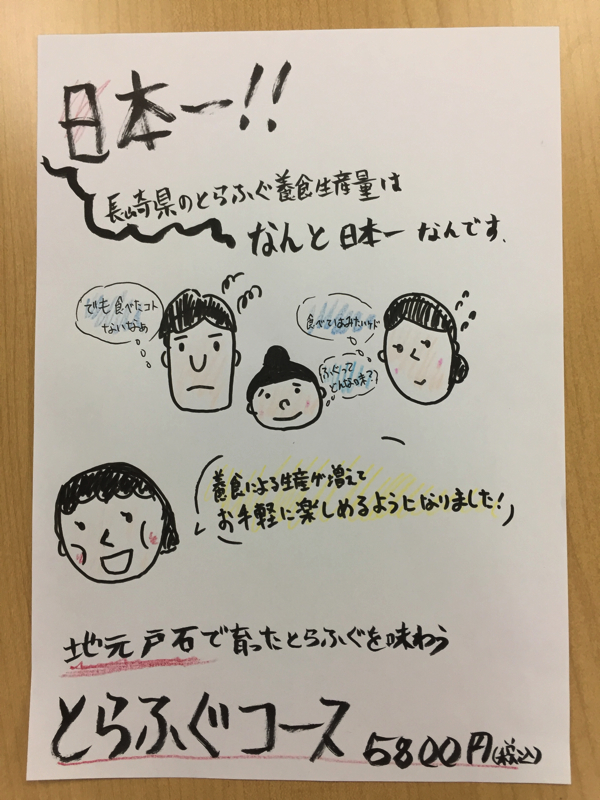 日本一!!
長崎県のとらふぐ養殖生産量は
なんと日本一なんです.
でも食べたコト
ないなぁ
食べてはみたいケド
ふぐって
どんな味?
養食による生産が増えて
お手軽に楽しめるようになりました!
地元戸石で育ったとらふぐを味わう
とらふぐコース 5800円(税込)